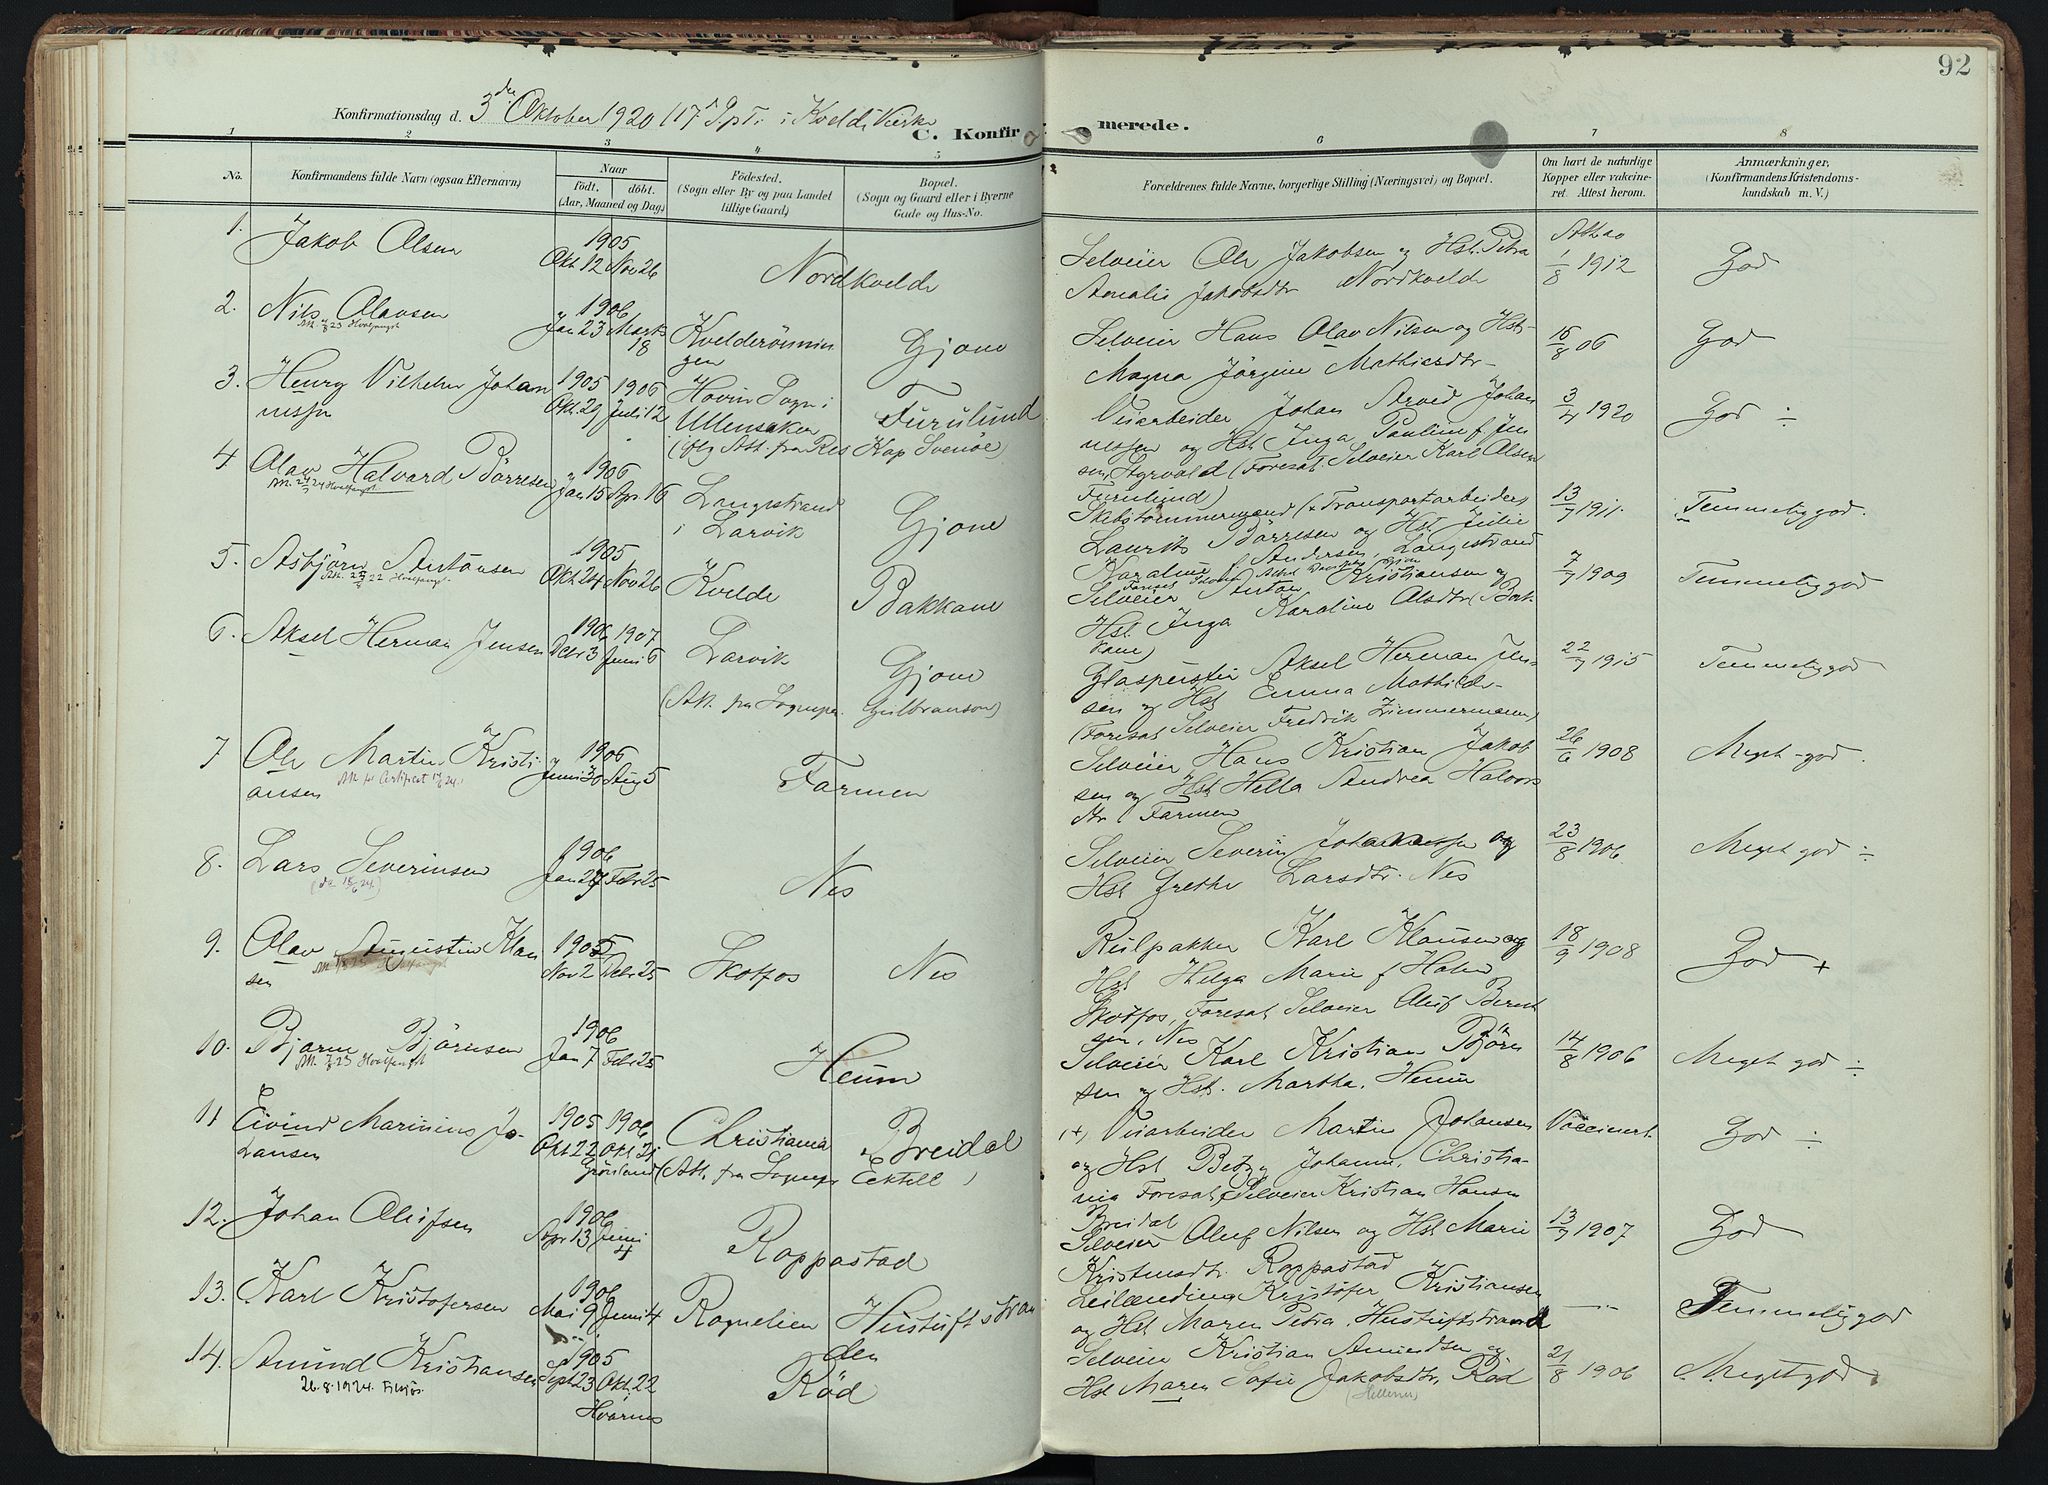 92
Konfirmationsdag d. 3die Oktober 1920 (17d S. p. T. i Kvelde Kirke
C. Konfirmerede.
1 2 3 4 5 6 7 8
No. Konfirmandens fulde Navn (ogsaa Efternavn). Naar födt. döbt. (Aar, Maaned og Dag.) Födested. (Sogn eller By og paa Landet tillige Gaard.) Bopæl. (Sogn og Gaard eller i Byerne Gade og Hus-No. Forældrenes fulde Navne, borgerlige Stilling (Næringsvei) og Bopæl. Om havt de naturlige Kopper eller vakcineret. Attest herom. Anmærkninger. (Konfirmandens Kristendomskundskab m. V.)
1. Jakob Olsen 1905 Okt. 12 Nov 26 Nordkvelde Selveier Ole Jakobsen og Hst. Petra
Amalie Jakobsdtr Nordkvelde 1/8 1912 God
2. Nils Olavsen 1906 Jan 23 Marts 18 Kvelderönningen Gjone Selveier Hans Olav Nilsen og Hst
Hvalfangst
Magna Jörgine Mathiasdtr 15/8 06 God
3. Henry Vilhelm Johannissen 1905 Okt. 29 1906 Juli 12 Hovin Sogn i Ullensaker Furulund
(iflg Att. fra Res Kap Svenöe)
Veiarbeider Johan Arvid Johannissen og Hst Inga Pauline f. Jensen, Styrvold (Foresat: Selveier Karl Olsen
Furulund) 3/4 1920 God ÷
4 Olav Halvard Börresen 1906 Jan 15 Apr 16 Langestrand i Larvik Gjone
Hvalfangst
Skibstømmermand (Transportarbeider)
Laurits Börresen og Hst Julie
Karoline f. Andersen, Langestrand 13/7 1911. Temmelig god.
5. Asbjörn Antonsen 1905 Okt 24 Nov 26 Kvelde Bakkane
Hvalfangst.
Selveier Anton Kristiansen og
Hst. Inga Karoline Olsdtr (Bakkane) 7/7 1909 Temmelig god
6. Aksel Herman Jensen 1906 Decbr 3 1907 Juni 6 Larvik Gjone
(Att. fra Sognepr. Gulbranson)
Glaspuster Aksel Herman Jensen og Hst Emma Mathilde
(Foresat Selveier Fredrik Zimmermann) 22/7 1915 Temmelig god
7 Ole Martin Kristiansen 1906 Juni 30 Aug 5 Farmen
Selveier Hans Kristian Jakobsen og Hst Hella Andrea Halvorsdtr Farmen 26/6 1908 Meget god.
8. Lars Severinsen 1906 Jan 27 Febr 25 Nes
Selveier Severin Johannessen og
Hst Grethe Larsdtr. Nes 23/8 1906. Meget god ÷
9. Olav Augustin Klausen 1905 Nov 2 Decbr 25 Skotfos Nes
Hvalfangst
Rulpakker Karl Klausen og
Hst Helga Marie f Holm
Skotfos, Foresat Selveier Oluf Berntsen, Nes 18/9 1908 God +
10. Bjarne Björnsen 1906 Jan 7 Febr 25 Heum
Hvalfangst
Selveier Karl Kristian Björnsen og Hst. Martha, Heum 14/8 1906 Meget god ÷
11 Eivind Marinius Johansen 1905 Okt 22 1906 Okt 21 Christiania Breidal
Grønland (Att. fra Sognepr Eektell)
Veiarbeider Martin Johansen
og Hst Betzy Johanne, Christiania Foresat, Selveier Kristian Hansen
Breidal Vaccinert. God ÷
12. Johan Olufsen 1906 Apr 13 Juni 4 Roppastad
Selveier Oluf Nilsen og Hst Marie
Kristensdtr Roppastad 13/7 1907 God
13. Karl Kristofersen 1906 Mai 9 Juni 4 Rognelien Hustuftstranden
Leilænding Kristofer Kristiansen
og Hst Maren Petra, Hustuftstrand Temmelig god
14. Amund Kristiansen 1905 Sept 23 Okt. 22 Röd
26.8.1924. Hvarnes
Selveier Kristian Amundsen og
Hst Maren Sofie Jakobsdtr, Röd 21/8 1906 Meget god.